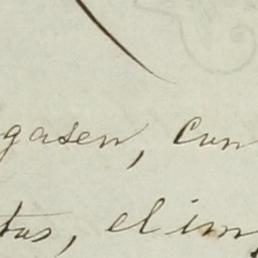 gasen, cun
tas, el im